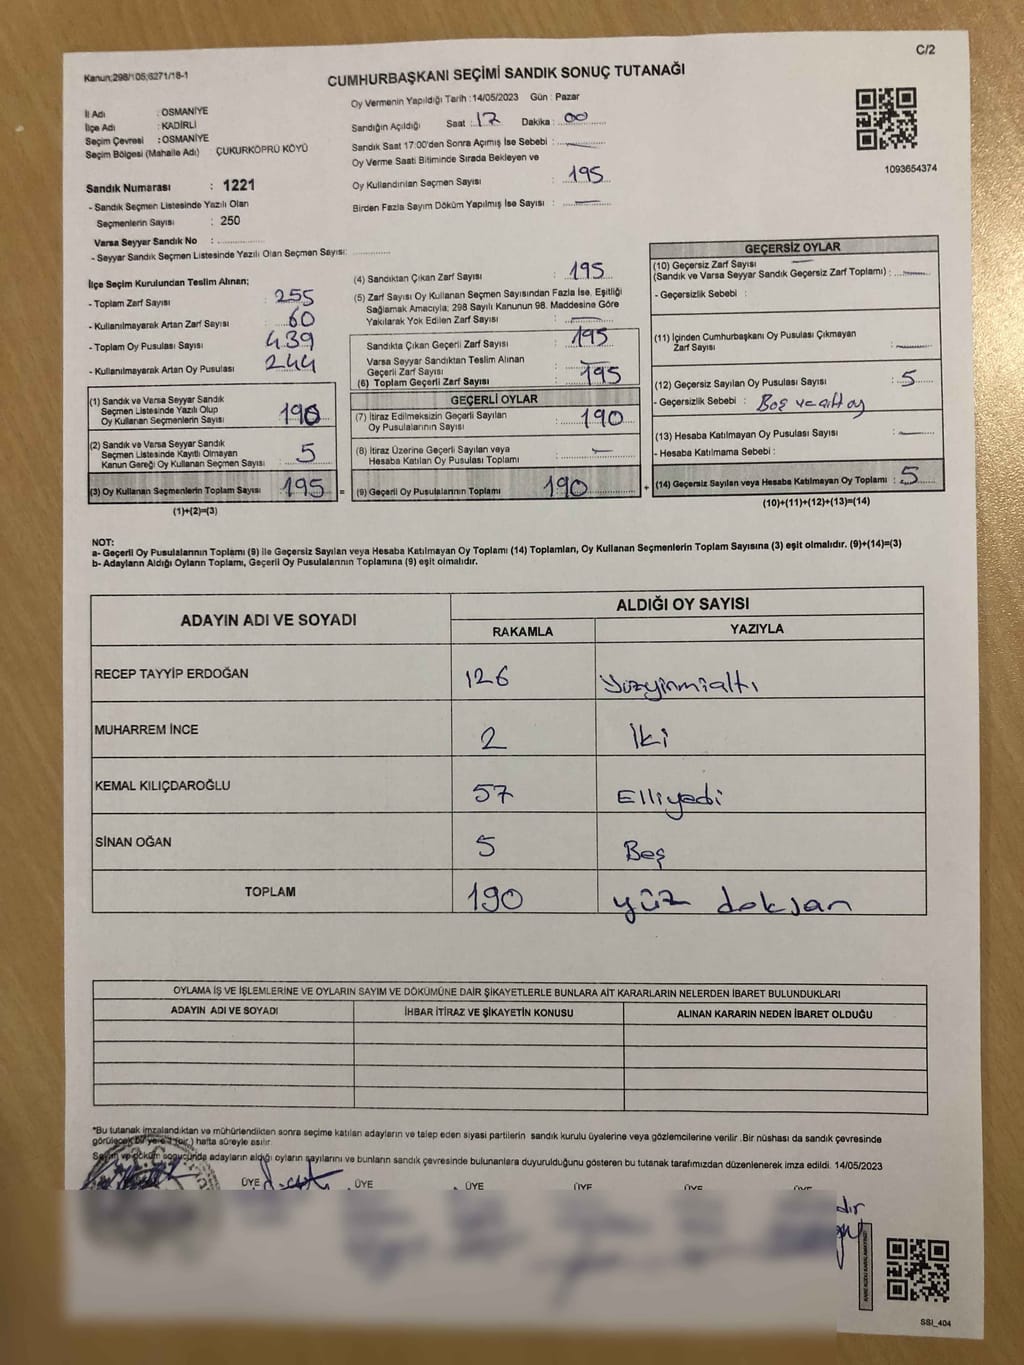 C/2
Kanun;298/105;6271/18-1
CUMHURBAŞKANI SEÇİMİ SANDIK SONUÇ TUTANAĞI
İl Adı : OSMANİYE
İlçe Adı : KADİRLİ
Seçim Çevresi : OSMANİYE
Seçim Bölgesi (Mahalle Adı) ÇUKURKÖPRÜ KÖYÜ
Oy Vermenin Yapıldığı Tarih :14/05/2023 Gün : Pazar
Sandığın Açıldığı Saat : 17 Dakika : 00
Sandık Saat 17:00'den Sonra Açımış İse Sebebi :
Oy Verme Saati Bitiminde Sırada Bekleyen ve
Oy Kullandırılan Seçmen Sayısı : 195
Birden Fazla Sayım Döküm Yapılmış İse Sayısı : —
1093654374
Sandık Numarası : 1221
- Sandık Seçmen Listesinde Yazılı Olan
Seçmenlerin Sayısı : 250
Varsa Seyyar Sandık No :
- Seyyar Sandık Seçmen Listesinde Yazılı Olan Seçmen Sayısı:
İlçe Seçim Kurulundan Teslim Alınan;
- Toplam Zarf Sayısı : 255
- Kullanılmayarak Artan Zarf Sayısı : 60
- Toplam Oy Pusulası Sayısı : 439
- Kullanılmayarak Artan Oy Pusulası : 244
(1) Sandık ve Varsa Seyyar Sandık
Seçmen Listesinde Yazılı Olup
Oy Kullanan Seçmenlerin Sayısı : 190
(2) Sandık ve Varsa Seyyar Sandık
Seçmen Listesinde Kayıtlı Olmayan
Kanun Gereği Oy Kullanan Seçmen Sayısı : 5
(3) Oy Kullanan Seçmenlerin Toplam Sayısı : 195 =
(1)+(2)=(3)
(4) Sandıktan Çıkan Zarf Sayısı : 195
(5) Zarf Sayısı Oy Kullanan Seçmen Sayısından Fazla İse, Eşitliği
Sağlamak Amacıyla; 298 Sayılı Kanunun 98. Maddesine Göre
Yakılarak Yok Edilen Zarf Sayısı : —
Sandıkta Çıkan Geçerli Zarf Sayısı : 195
Varsa Seyyar Sandıktan Teslim Alınan
Geçerli Zarf Sayısı : —
(6) Toplam Geçerli Zarf Sayısı : 195
GEÇERLİ OYLAR
(7) İtiraz Edilmeksizin Geçerli Sayılan
Oy Pusulalarının Sayısı : 190
(8) İtiraz Üzerine Geçerli Sayılan veya
Hesaba Katılan Oy Pusulası Toplamı : —
(9) Geçerli Oy Pusulalarının Toplamı : 190 +
GEÇERSİZ OYLAR
(10) Geçersiz Zarf Sayısı —
(Sandık ve Varsa Seyyar Sandık Geçersiz Zarf Toplamı) : —
- Geçersizlik Sebebi :
(11) İçinden Cumhurbaşkanı Oy Pusulası Çıkmayan
Zarf Sayısı : —
(12) Geçersiz Sayılan Oy Pusulası Sayısı : 5
- Geçersizlik Sebebi : Boş ve çift oy
(13) Hesaba Katılmayan Oy Pusulası Sayısı : —
- Hesaba Katılmama Sebebi :
(14) Geçersiz Sayılan veya Hesaba Katılmayan Oy Toplamı : 5
(10)+(11)+(12)+(13)=(14)
NOT:
a- Geçerli Oy Pusulalarının Toplamı (9) ile Geçersiz Sayılan veya Hesaba Katılmayan Oy Toplamı (14) Toplamları, Oy Kullanan Seçmenlerin Toplam Sayısına (3) eşit olmalıdır. (9)+(14)=(3)
b- Adayların Aldığı Oyların Toplamı, Geçerli Oy Pusulalarının Toplamına (9) eşit olmalıdır.
ADAYIN ADI VE SOYADI ALDIĞI OY SAYISI
RAKAMLA YAZIYLA
RECEP TAYYİP ERDOĞAN 126 Yüzyirmialtı
MUHARREM İNCE 2 İki
KEMAL KILIÇDAROĞLU 57 Elliyedi
SİNAN OĞAN 5 Beş
TOPLAM 190 yüz doksan
OYLAMA İŞ VE İŞLEMLERİNE VE OYLARIN SAYIM VE DÖKÜMÜNE DAİR ŞİKAYETLERLE BUNLARA AİT KARARLARIN NELERDEN İBARET BULUNDUKLARI
ADAYIN ADI VE SOYADI İHBAR İTİRAZ VE ŞİKAYETİN KONUSU ALINAN KARARIN NEDEN İBARET OLDUĞU
*Bu tutanak imzalandıktan ve mühürlendikten sonra seçime katılan adayların ve talep eden siyasi partilerin sandık kurulu üyelerine veya gözlemcilerine verilir. Bir nüshası da sandık çevresinde
görülecek bir yere 1 (bir) hafta süreyle asılır.
Sayım ve döküm sonucunda adayların aldığı oyların sayılarını ve bunların sandık çevresinde bulunanlara duyurulduğunu gösteren bu tutanak tarafımızdan düzenlenerek imza edildi. 14/05/2023
ÜYE ÜYE ÜYE ÜYE ÜYE ÜYE
SSI_404